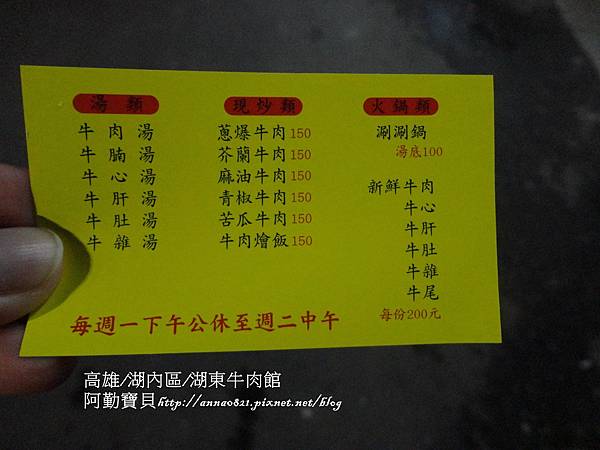 湯類
牛肉湯
牛腩湯
牛心湯
牛肝湯
牛肚湯
牛雜湯
現炒類
蔥爆牛肉150
芥蘭牛肉150
麻油牛肉150
青椒牛肉150
苦瓜牛肉150
牛肉燴飯150
火鍋類
涮涮鍋
湯底100
新鮮牛肉
牛心
牛肝
牛肚
牛雜
牛尾
每份200元
每週一下午公休至週二中午
高雄/湖內區/湖東牛肉館
阿勤寶貝http://anna0821.pixnet.net/blog